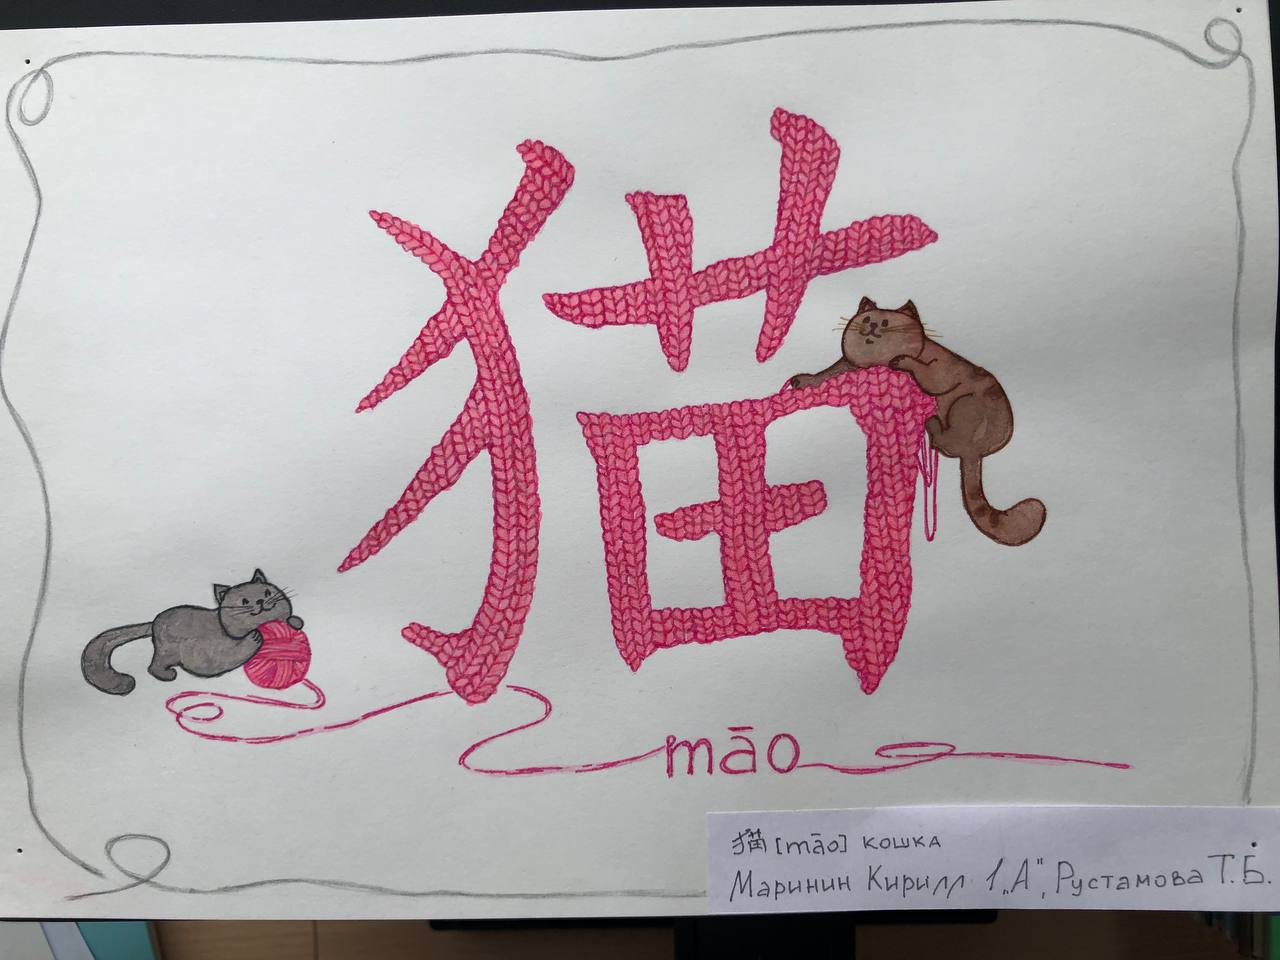 猫
māo
猫 [māo] кошка
Маринин Кирилл 1 „А", Рустамова Т.Б.